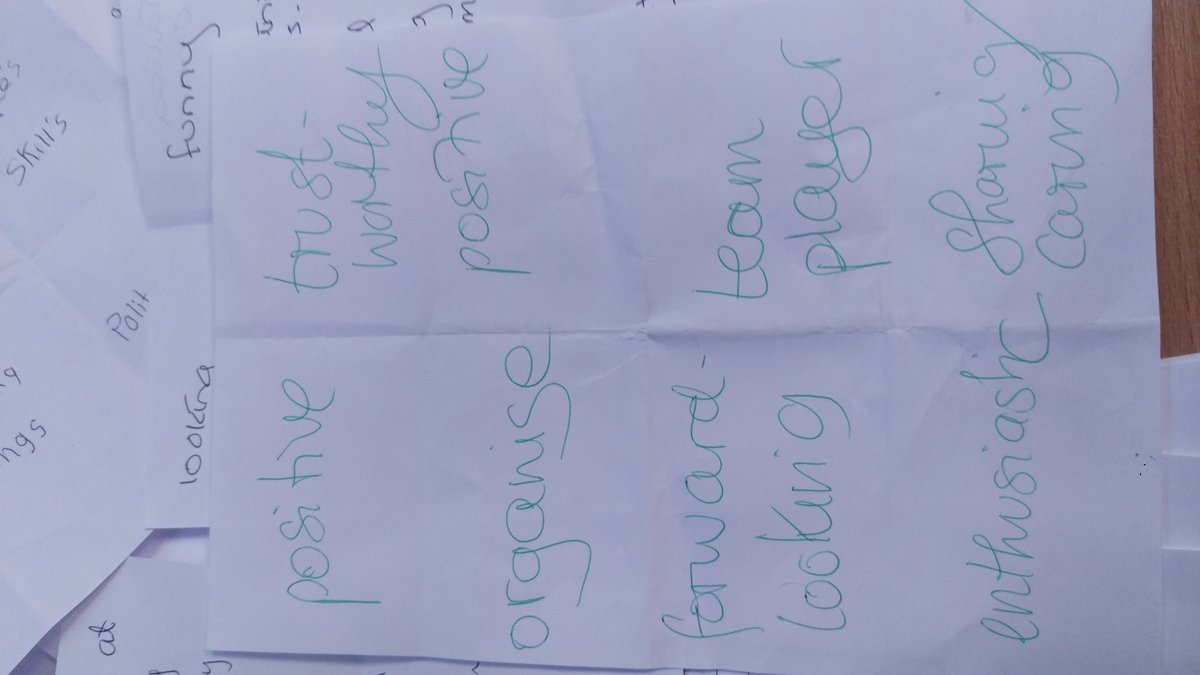 Skills
ngs
Polit
at
looking
funny
positive
trust-
worthy
organise
positive
forward-
looking
team
player
enthusiastic
Sharing
Caring